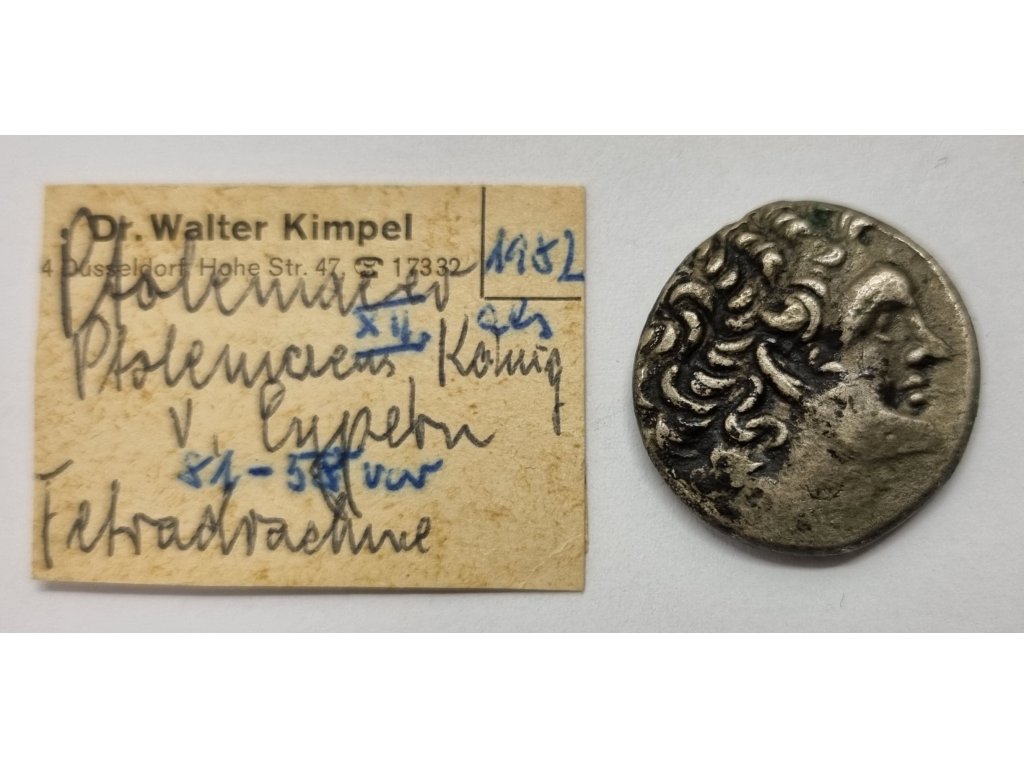 Dr. Walter Kimpel
4 Düsseldorf, Hohe Str. 47, ☎ 17332
1952
Ptolemaeus
XII. als
Ptolemaeus König
v. Cypern
81-58 vor
Tetradrachme